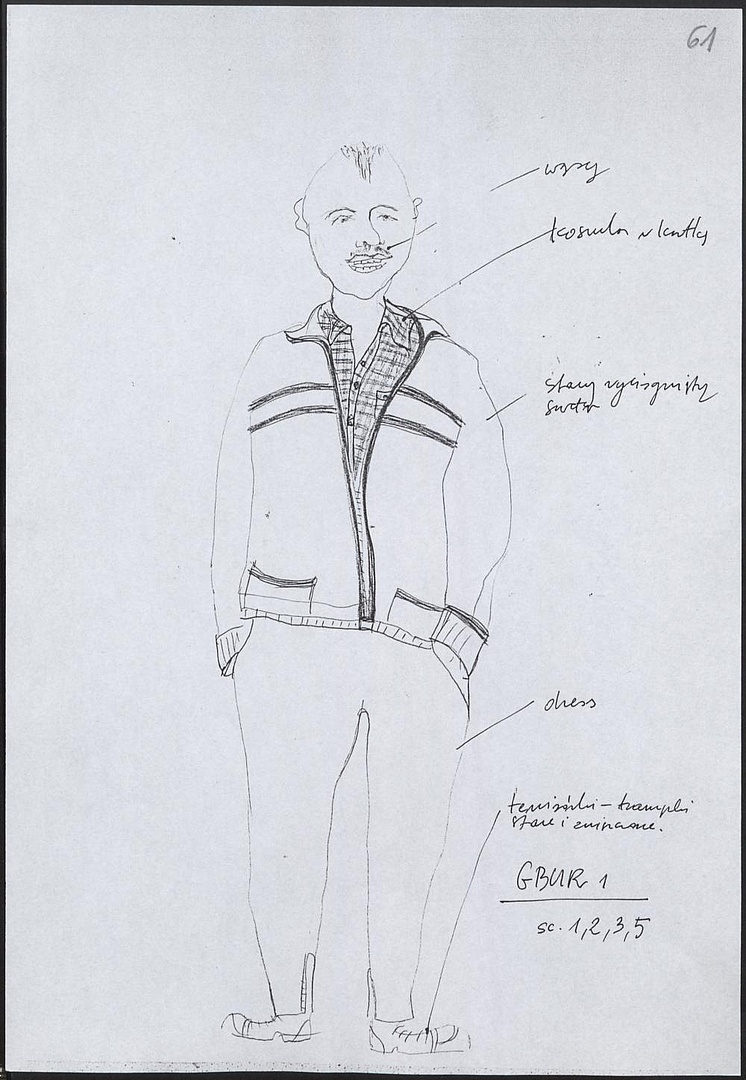 61
wąsy
koszula w kratkę
stary wyciągnięty
sweter
dress
tenisówki – trampki
stare i zniszczone.
GBUR 1
sc. 1,2,3,5